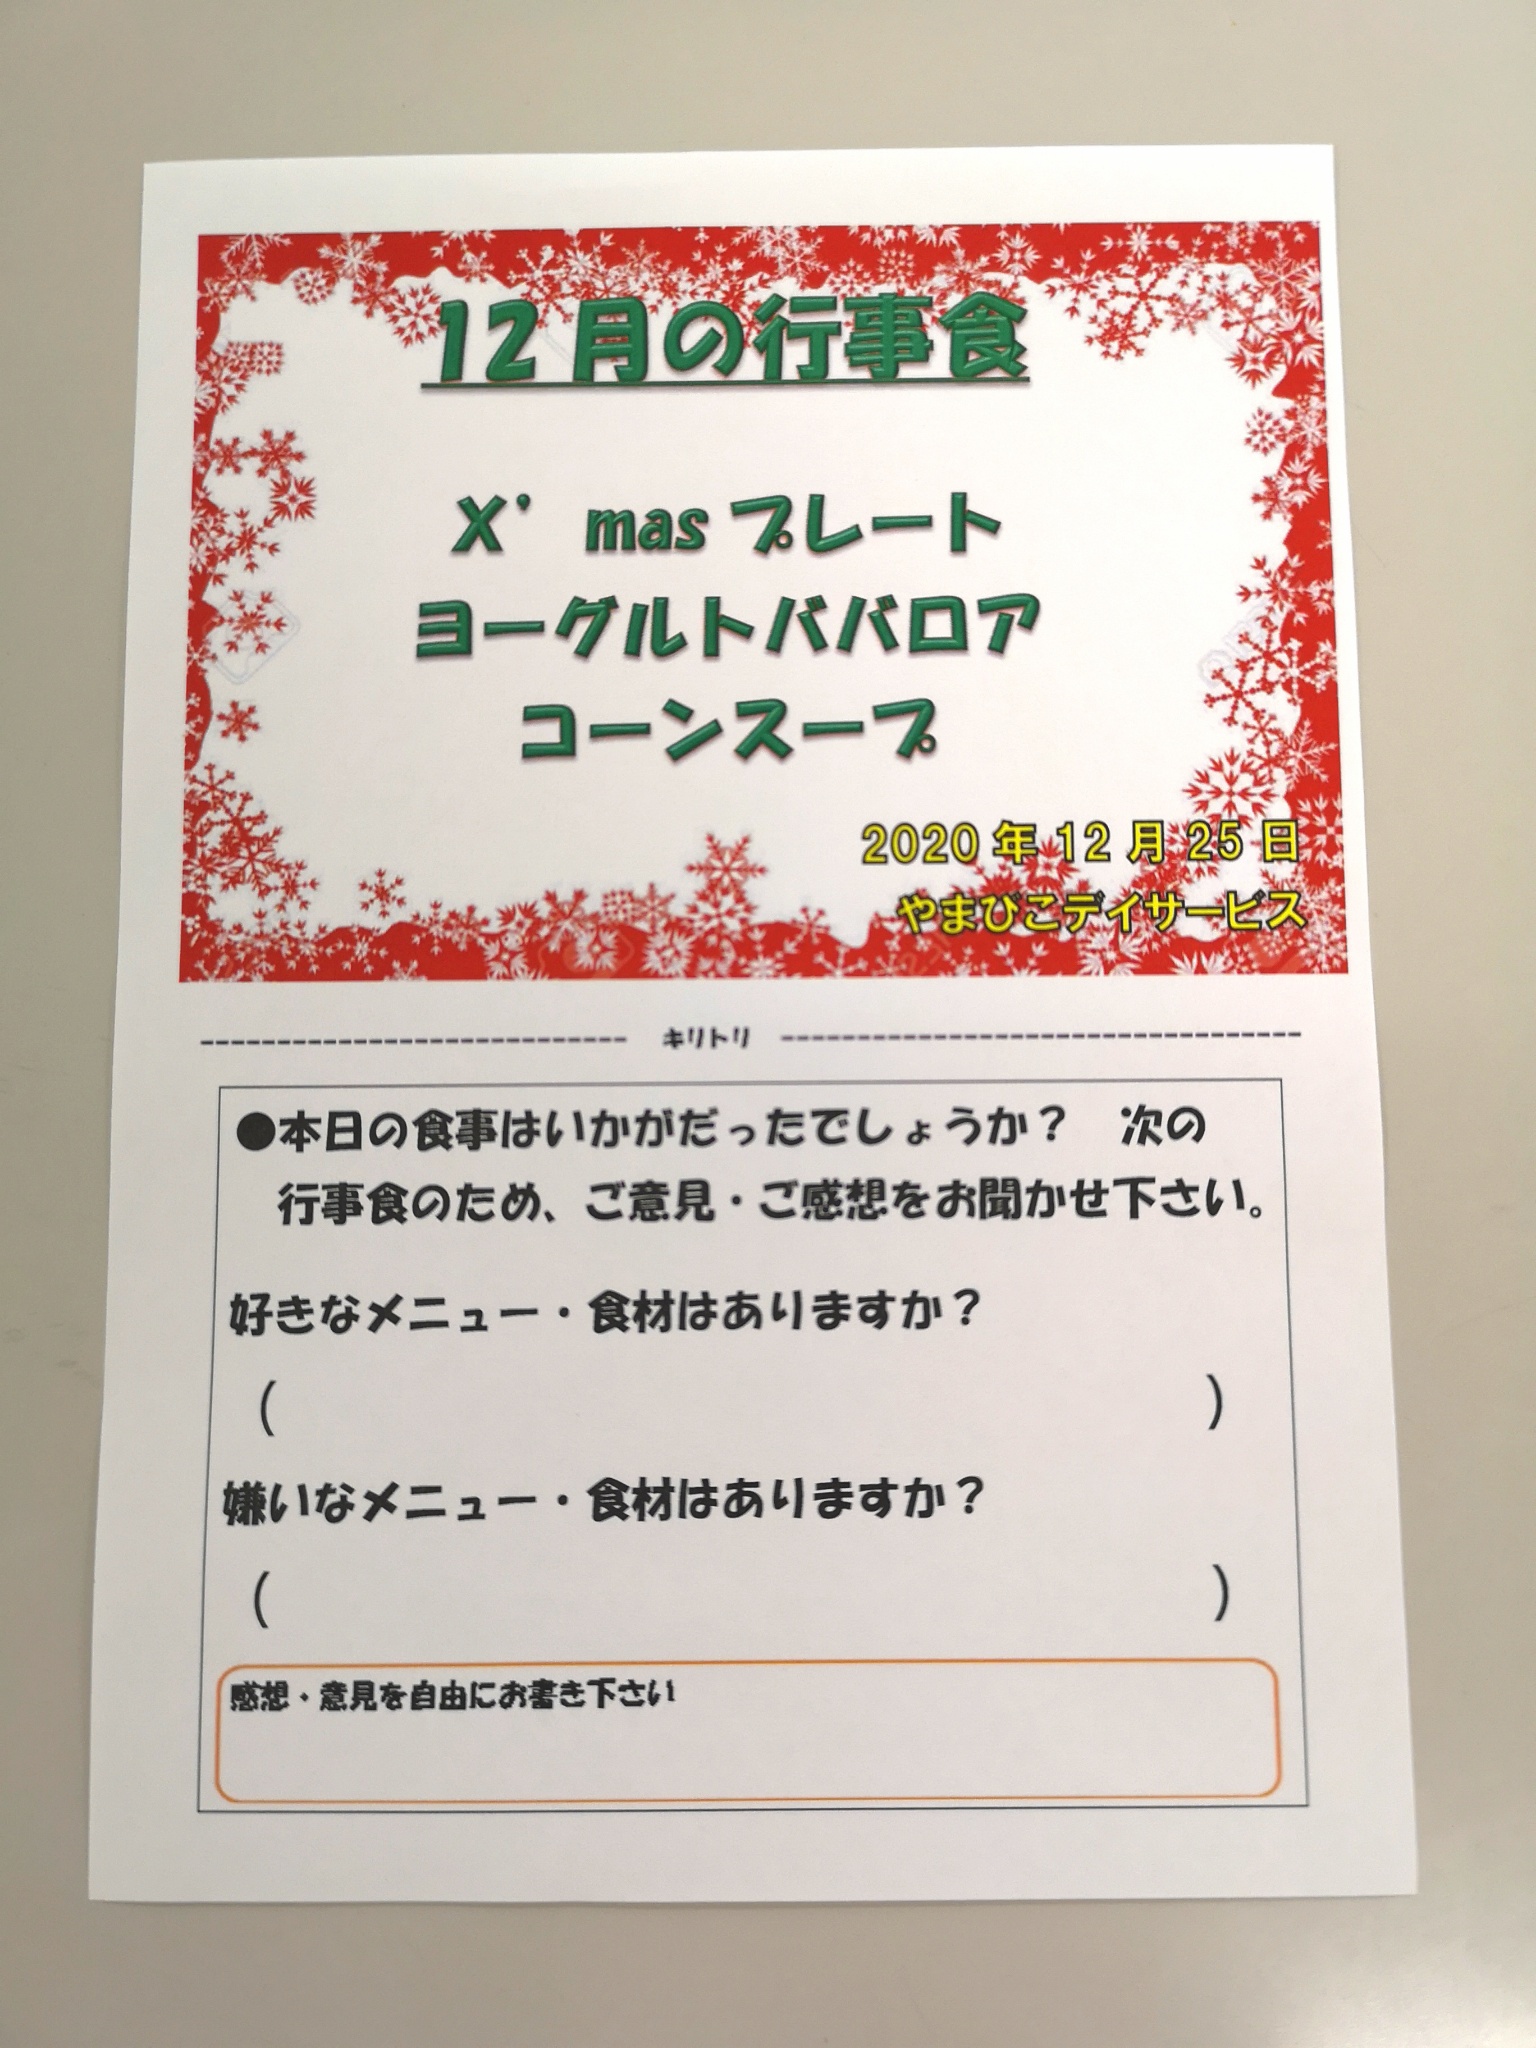 12月の行事食
X’ masプレート
ヨーグルトババロア
コーンスープ
2020年12月25日
やまびこデイサービス
キリトリ
●本日の食事はいかがだったでしょうか？　次の
行事食のため、ご意見・ご感想をお聞かせ下さい。
好きなメニュー・食材はありますか？
(　　　　　　　　　　　　)
嫌いなメニュー・食材はありますか？
(　　　　　　　　　　　　)
感想・意見を自由にお書き下さい